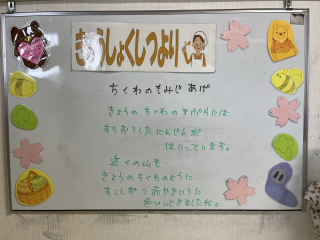 きゅうしょくしつより
ちくわのもみじあげ
きょうのちくわの天ぷらには、
すりおろしたにんじんが
はいっています。
近くの山も、
きょうのちくわのように、
すこしずつ赤やきいろに
色づいてきましたね。